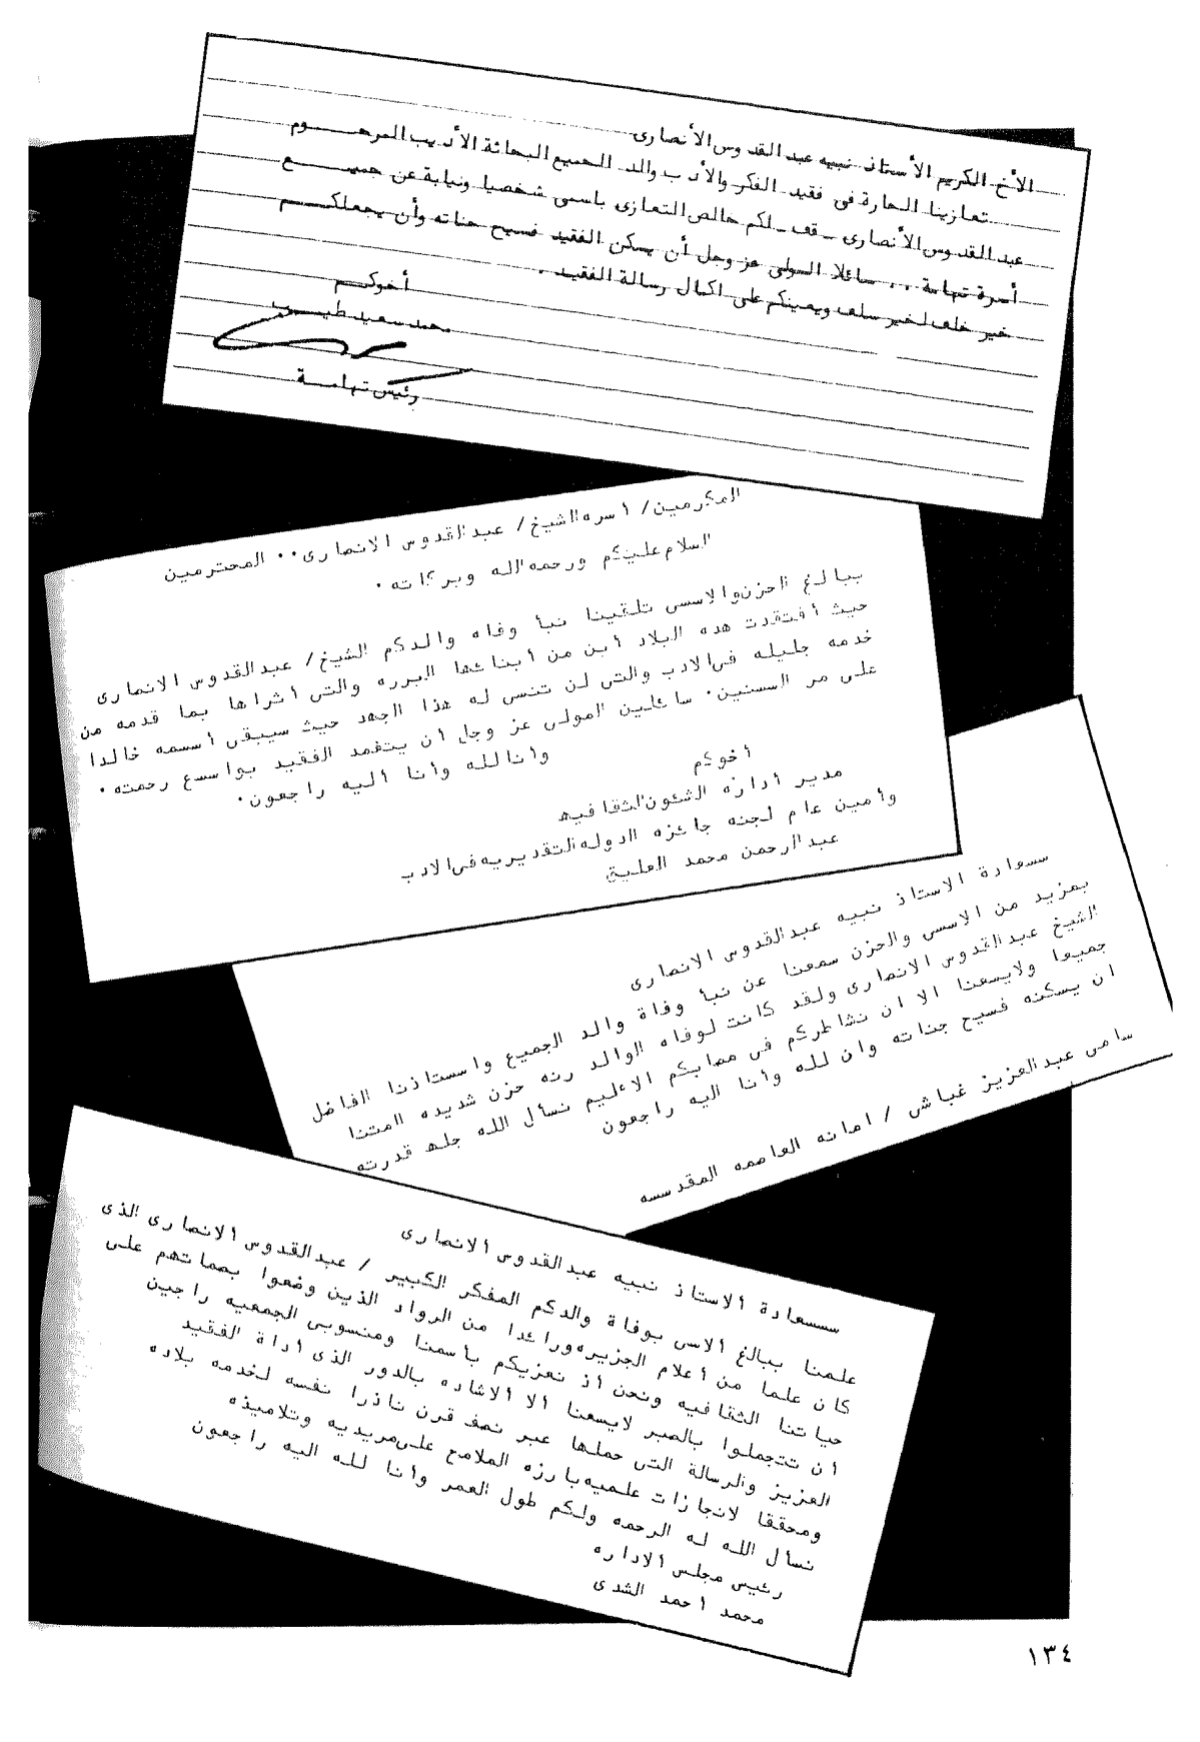 الأخ الكريم الأستاذ نبيه عبد القدوس الأنصارى
تعازينا الحارة فى فقيد الفكر والأدب والد الجميع البحاثة الأديب المرحوم
عبد القدوس الأنصارى - قف - لكم خالص التعازى باسمى شخصيا ونيابة عن جميع
أسرة تهامة .. سائلا المولى عز وجل أن يسكن الفقيد فسيح جناته وأن يجعلكم
خير خلف لخير سلف ويعينكم على اكمال رسالة الفقيد .
أخوكم
محمد سعيد طيب
رئيس تهامة
المكرمين/ اسره الشيخ/ عبدالقدوس الانصارى ٠٠ المحترمين
السلام عليكم ورحمه الله وبركاته ٠
ببالغ الحزن والاسى تلقينا نبأ وفاه والدكم الشيخ/ عبدالقدوس الانصارى
حيث أفتقدت هذه البلاد أبن من أبنائها البرره والتى أثراها بما قدمه من
خدمه جليله فى الادب والتى لن تنسى له هذا الجهد حيث سيبقى أسمه خالدا
على مر السنين ٠ سائلين المولى عز وجل أن يتغمد الفقيد بواسع رحمته ٠
وأنا لله وأنا أليه راجعون ٠
أخوكم
مدير أداره الشئون الثقافيه
وأمين عام لجنه جائزه الدوله التقديريه فى الادب
عبدالرحمن محمد العليق
سعادة الاستاذ نبيه عبدالقدوس الانصارى
بمزيد من الاسى والحزن سمعنا عن نبأ وفاة والد الجميع واستاذنا الفاضل
الشيخ عبدالقدوس الانصارى ولقد كانت لوفاه الوالد رنه حزن شديده المتنا
جميعا ولايسعنا الا ان نشاطركم فى مصابكم الاليم نسأل الله جله قدرته
ان يسكنه فسيح جناته وان لله وأنا اليه راجعون
سامى عبدالعزيز غباشى / امانه العاصمه المقدسه
سعادة الاستاذ نبيه عبدالقدوس الانصارى
علمنا ببالغ الاسى بوفاة والدكم المفكر الكبير / عبدالقدوس الانصارى الذى
كان علما من أعلام الجزيره ورائدا من الرواد الذين وضعوا بصماتهم على
حياتنا الثقافيه ونحن أذ نعزيكم بأسمنا ومنسوبى الجمعيه راجين
أن تتجملوا بالصبر لايسعنا ألا الاشاده بالدور الذى أداة الفقيد
العزيز والرسالة التى حملها عبر نصف قرن ناذرا نفسه لخدمه بلاده
ومحققا لانجازات علميه بارزه الملامح على مريديه وتلاميذه
نسأل الله له الرحمه ولكم طول العمر وأنا لله اليه راجعون
رئيس مجلس الاداره
محمد احمد الشدى
١٣٤